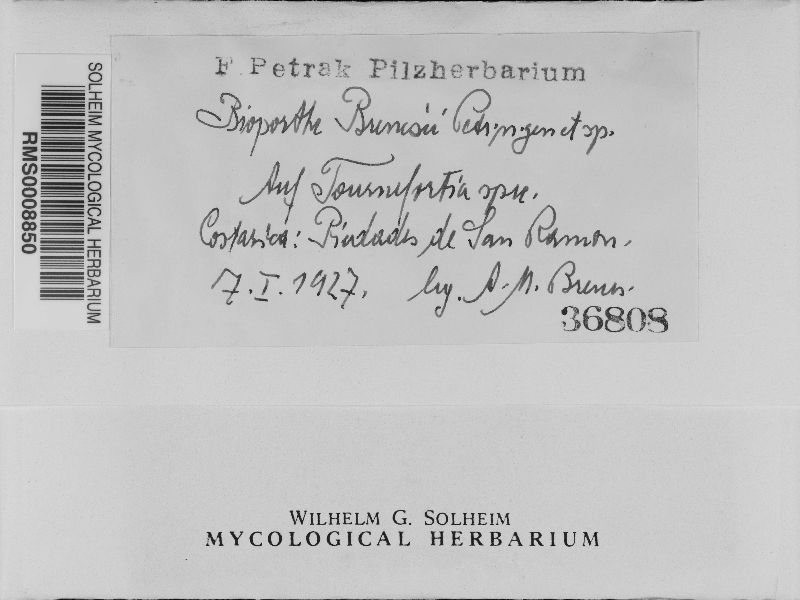 SOLHEIM MYCOLOGICAL HERBARIUM
RMS0008850
F. Petrak Pilzherbarium
Bioporthe Brenesii Petr. n. gen et sp.
Auf Tournefortia spec.
Costarica: Piedades de San Ramon.
7. I. 1927. leg. A. M. Brenes.
36808
WILHELM G. SOLHEIM
MYCOLOGICAL HERBARIUM